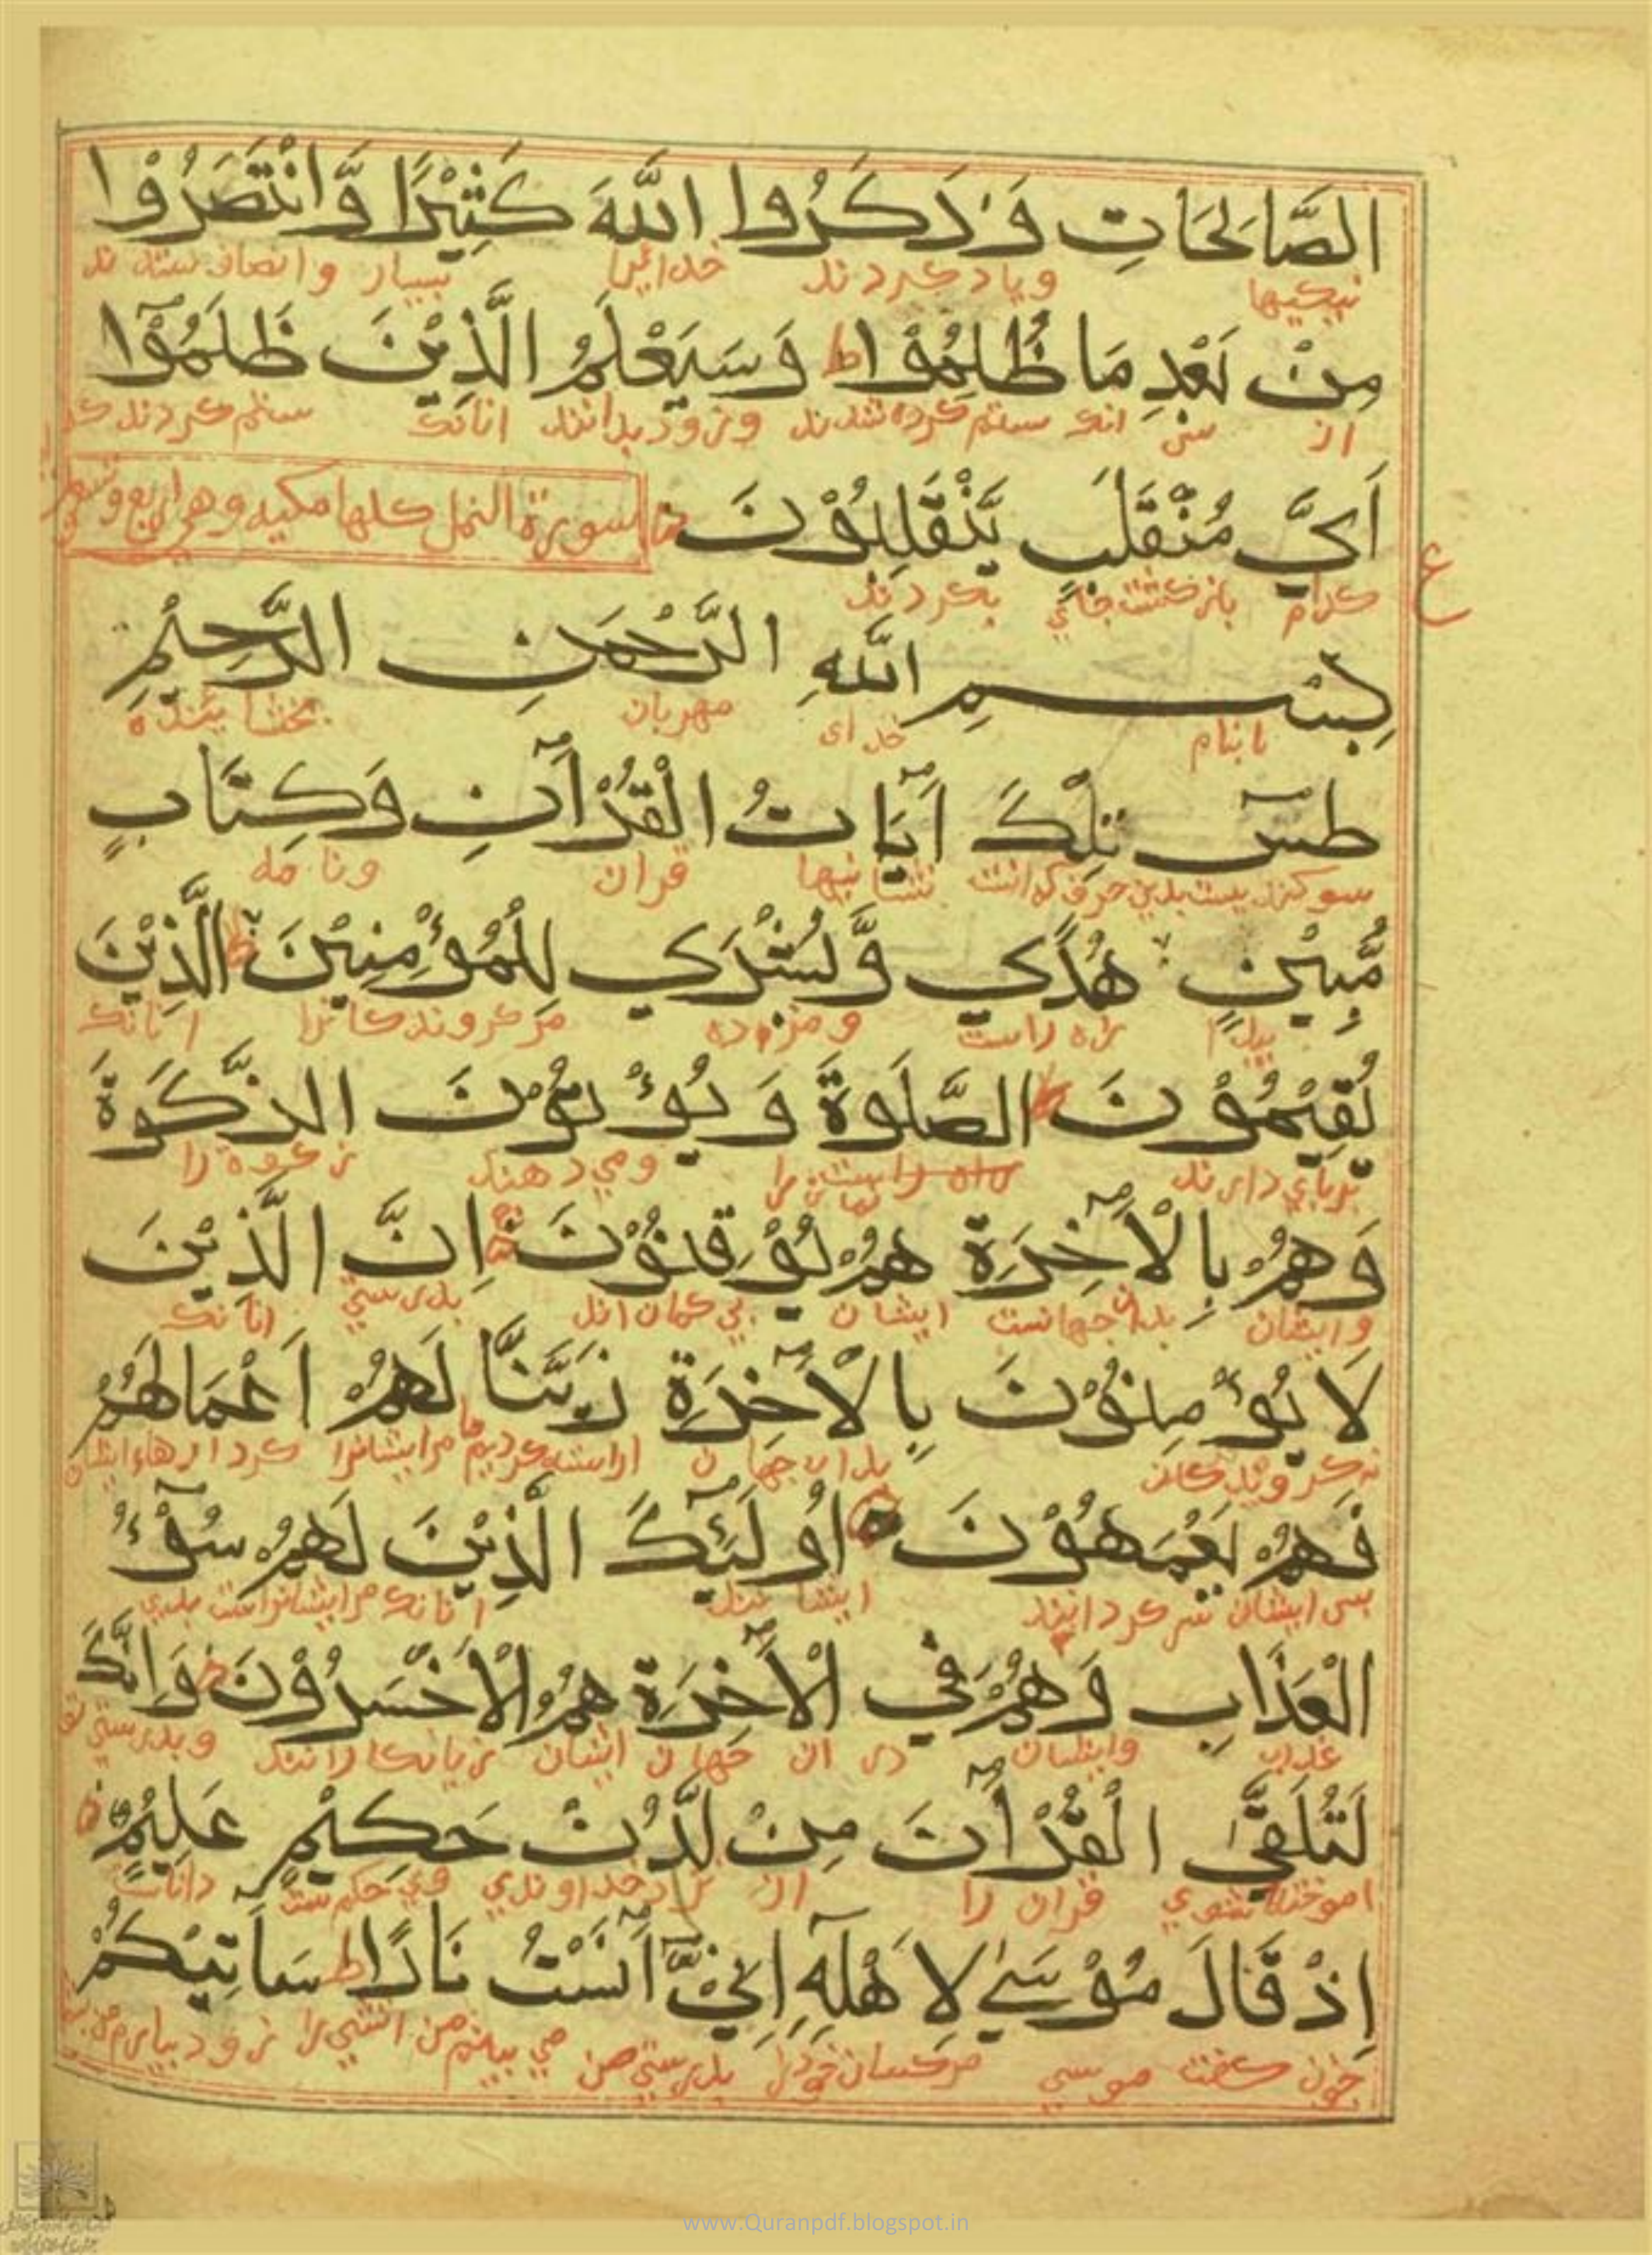 الصَّالَحَاتِ وَذَكَرُوا اللَّهَ كَثِيْرًا وَّانْتَصَرُوْا
نيكيها وياد كردند خدايرا بسيار وانصاف ستدند
مِنْ بَعْدِ مَا ظُلِمُوْا ط وَسَيَعْلَمُ الَّذِيْنَ ظَلَمُوْٓا
از پس انك ستم كرده شدند وزود بدانند انانك ستم كردند كه
اَيَّ مُنْقَلَبٍ يَّنْقَلِبُوْنَ سورة النمل كلها مكيه وهي اربع وتسعون
ع
كدام باز كشت جاي بكردند
بِسْمِ اللَّهِ الرَّحْمٰنِ الرَّحِيْمِ
بنام خداى مهربان بخشاينده
طٰسٓ تِلْكَ اٰيَاتُ الْقُرْاٰنِ وَكِتَابٍ
سوكند بدين حرف كه انست نشانيها قران ونامه
مُّبِيْنٍ هُدًي وَّبُشْرَي لِلْمُؤْمِنِيْنَ الَّذِيْنَ
راه راست ومژده مر كروندكانرا انانك
يُقِيْمُوْنَ الصَّلَوةَ وَيُؤْتُوْنَ الزَّكَوةَ
برپاي دارند راه راست نماز را ومي دهند زكوة را
وَهُمْ بِالْاٰخِرَةِ هُمْ يُوْقِنُوْنَ اِنَّ الَّذِيْنَ
وايشان بدان جهانست ايشان بي كمان اند بدرستي انانك
لَا يُؤْمِنُوْنَ بِالْاٰخِرَةِ زَيَّنَّا لَهُمْ اَعْمَالَهُمْ
نه كروندكان بدان جهان اراسته كرديم ما مرايشانرا كردارهاء ايشان
فَهُمْ يَعْمَهُوْنَ اُولٰٓئِكَ الَّذِيْنَ لَهُمْ سُوْٓءُ
پس ايشان سركردانند ايشانند انانك مرايشانراست بدي
الْعَذَابِ وَهُمْ فِي الْاٰخِرَةِ هُمُ الْاَخْسَرُوْنَ وَاِنَّكَ
عذاب وايشان در ان جهان ايشان زيانكارانند وبدرستي تو
لَتُلَقَّى الْقُرْاٰنَ مِنْ لَّدُنْ حَكِيْمٍ عَلِيْمٍ
اموخته شوي قران را از نزد خداوندي حكيمست داناست
اِذْ قَالَ مُوْسَىٰ لِاَهْلِهٓ اِنِّيْٓ اٰنَسْتُ نَارًا ط سَاٰتِيْكُمْ
چون كفت موسي مر كسان خود را بدرستي من مي بينم من اتشي را زود بيارم من
www.Quranpdf.blogspot.in